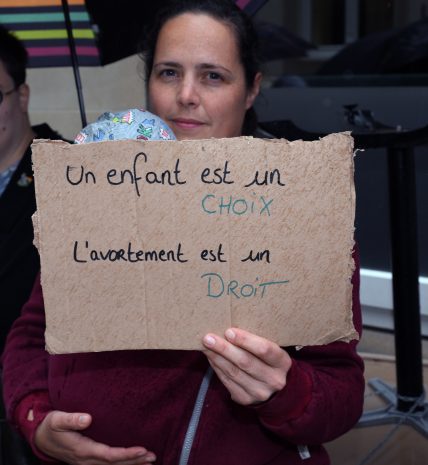 Un enfant est un
CHOIX
L'avortement est un
DROIT